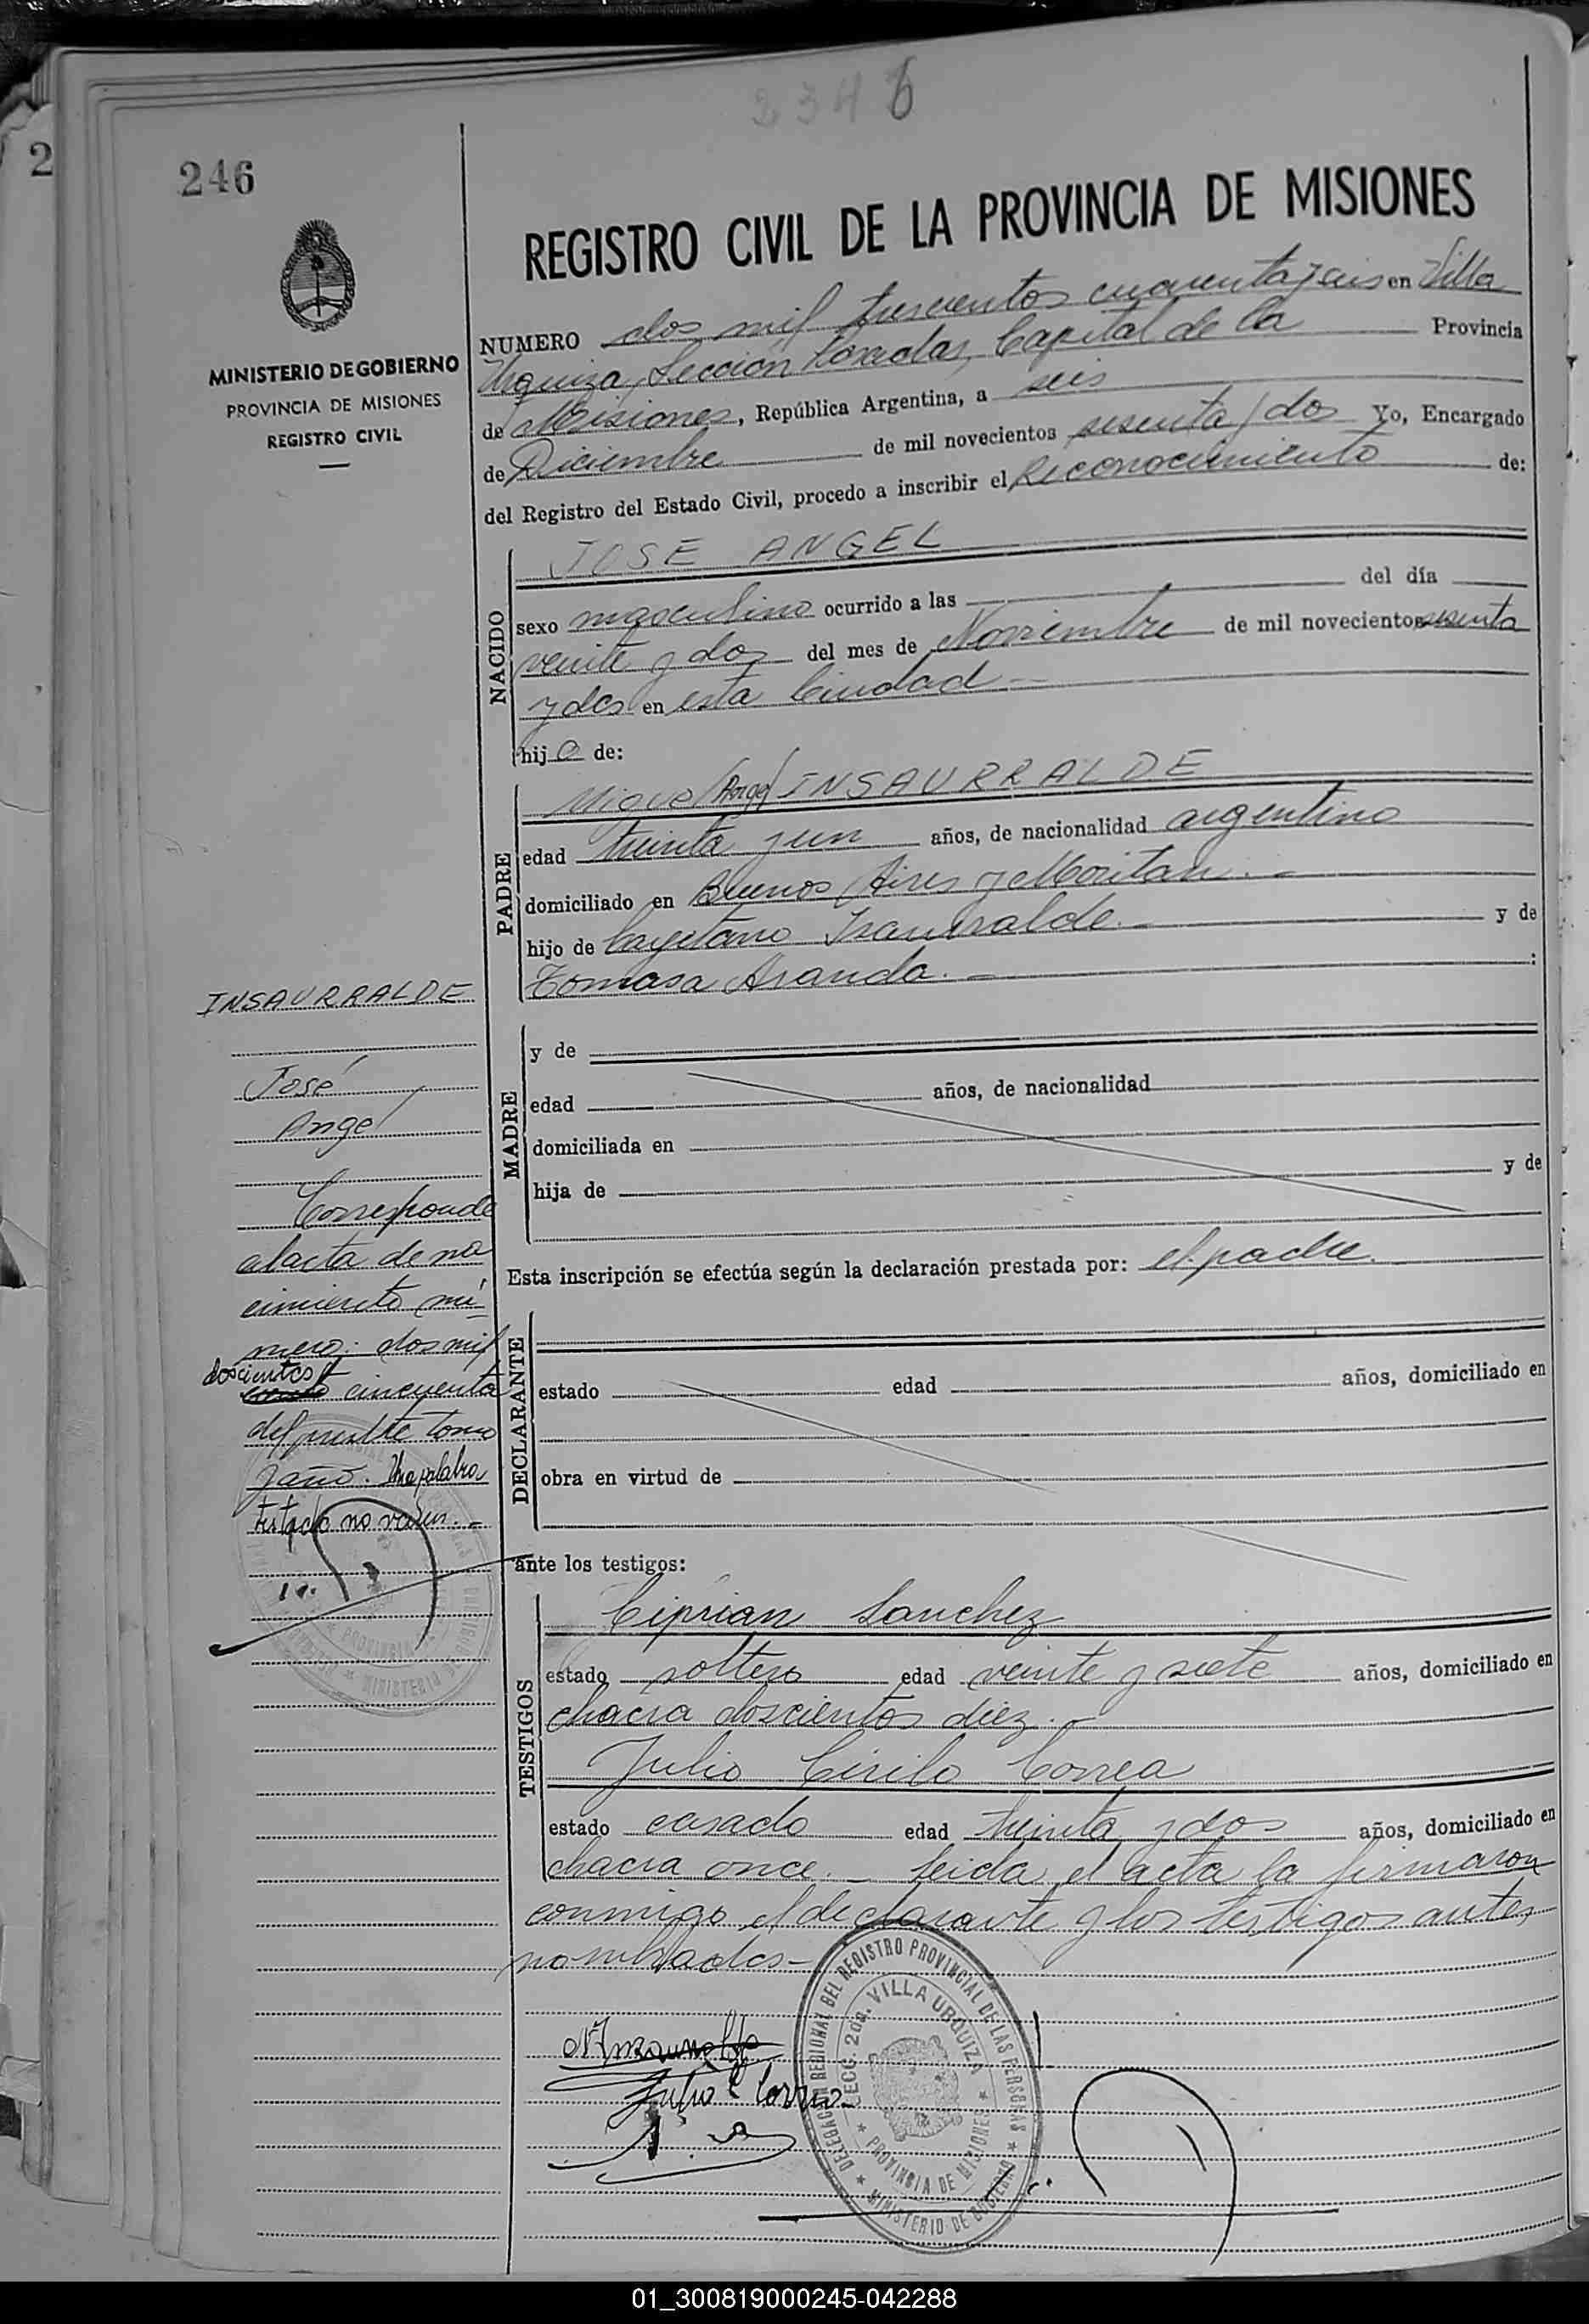 2346
2
246
REGISTRO CIVIL DE LA PROVINCIA DE MISIONES
MINISTERIO DE GOBIERNO
PROVINCIA DE MISIONES
REGISTRO CIVIL
NUMERO dos mil trescientos cuarenta y seis en Villa
Urquiza, Sección Posadas, Capital de la Provincia
de Misiones, República Argentina, a seis
de Diciembre de mil novecientos sesenta y dos Yo, Encargado
del Registro del Estado Civil, procedo a inscribir el Reconocimiento de:
NACIDO
JOSE ANGEL
sexo masculino ocurrido a las del día
veinte y dos del mes de Noviembre de mil novecientos sesenta
y dos en esta Ciudad
hijo de:
PADRE
Miguel Angel INSAURRALDE
edad treinta y un años, de nacionalidad argentino
domiciliado en Buenos Aires y
hijo de Cayetano y de
Tomasa Aranda. :
MADRE
y de
edad años, de nacionalidad
domiciliada en
hija de y de
Esta inscripción se efectúa según la declaración prestada por: el padre.
DECLARANTE
estado edad años, domiciliado en
obra en virtud de
ante los testigos:
TESTIGOS
Ciprian Sanchez
estado soltero edad veinte y siete años, domiciliado en
chacra doscientos diez.
Julio Cirilo Correa
estado casado edad treinta y dos años, domiciliado en
chacra once. leida el acta la firmaron
conmigo el declarante y los testigos antes
nombrados
INSAURRALDE
José
Angel
Corresponde
al acta de na
cimiento nú-
mero: dos mil
doscientos
cincuenta
del presente tomo
y año. Una palabra
testado no valen.
DELEGACION REGIONAL DEL REGISTRO PROVINCIAL DE LAS PERSONAS
SECC. 2da. VILLA URQUIZA
PROVINCIA DE MISIONES
MINISTERIO DE GOBIERNO
Julio C Correa
01_300819000245-042288